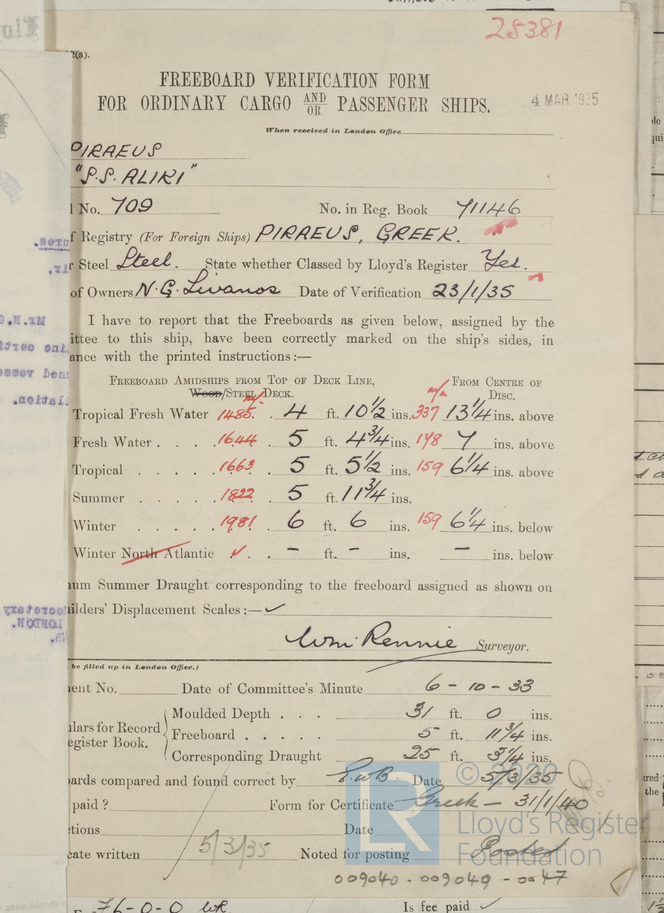 25381
2(a).
FREEBOARD VERIFICATION FORM
FOR ORDINARY CARGO AND/OR PASSENGER SHIPS.
4 MAR 1935
When received in London Office
PIRAEUS
"S.S. ALIKI"
No. 709 No. in Reg. Book 71146
f Registry (For Foreign Ships) PIRAEUS, GREEK.
r Steel Steel. State whether Classed by Lloyd's Register Yes.
of Owners N. G. Livanos Date of Verification 23/1/35
I have to report that the Freeboards as given below, assigned by the
ittee to this ship, have been correctly marked on the ship's sides, in
ance with the printed instructions:—
Freeboard Amidships from Top of Deck Line, From Centre of
Wood/Steel Deck. m/m m/m Disc.
Tropical Fresh Water 1485. 4 ft. 10 1/2 ins. 337 13 1/4 ins. above
Fresh Water . . . . 1644 5 ft. 4 3/4 ins. 178 7 ins. above
Tropical . . . . . 1663 5 ft. 5 1/2 ins. 159 6 1/4 ins. above
Summer . . . . . 1822 5 ft. 11 3/4 ins.
Winter . . . . . 1981. 6 ft. 6 ins. 159 6 1/4 ins. below
Winter North Atlantic ✓ . – ft. – ins. – ins. below
um Summer Draught corresponding to the freeboard assigned as shown on
ilders' Displacement Scales:— ✓
Wm Rennie Surveyor.
be filled up in London Office.)
ent No. Date of Committee's Minute 6-10-33
Moulded Depth . . . 31 ft. 0 ins.
lars for Record
Freeboard . . . . . 5 ft. 11 3/4 ins.
egister Book.
Corresponding Draught 25 ft. 3 3/4 ins.
ards compared and found correct by Date 5/3/35
paid ? Form for Certificate Greek – 31/1/40
ctions Date
cate written 5/3/35 Noted for posting Posted
009040-009049-0047
© 2020
LR
Lloyd's Register
Foundation
76-0-0 Is fee paid ✓